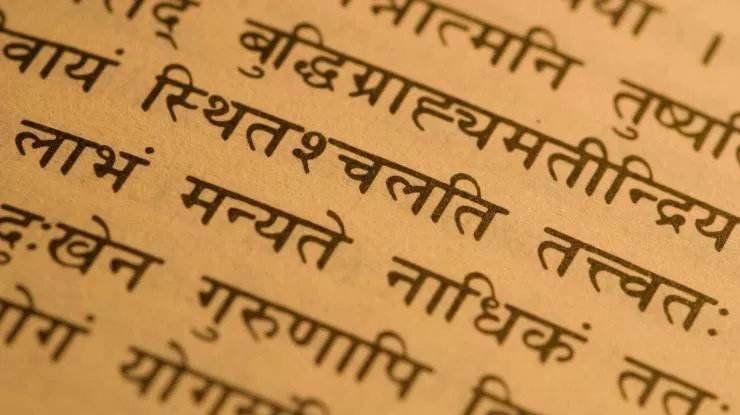 या ।
न्नात्मनि तुष्यति
बुद्धिग्राह्यमतीन्द्रिय
वायं स्थितश्चलति तत्त्वतः
लाभं मन्यते नाधिकं ततः
दुःखेन गुरुणापि
योगं